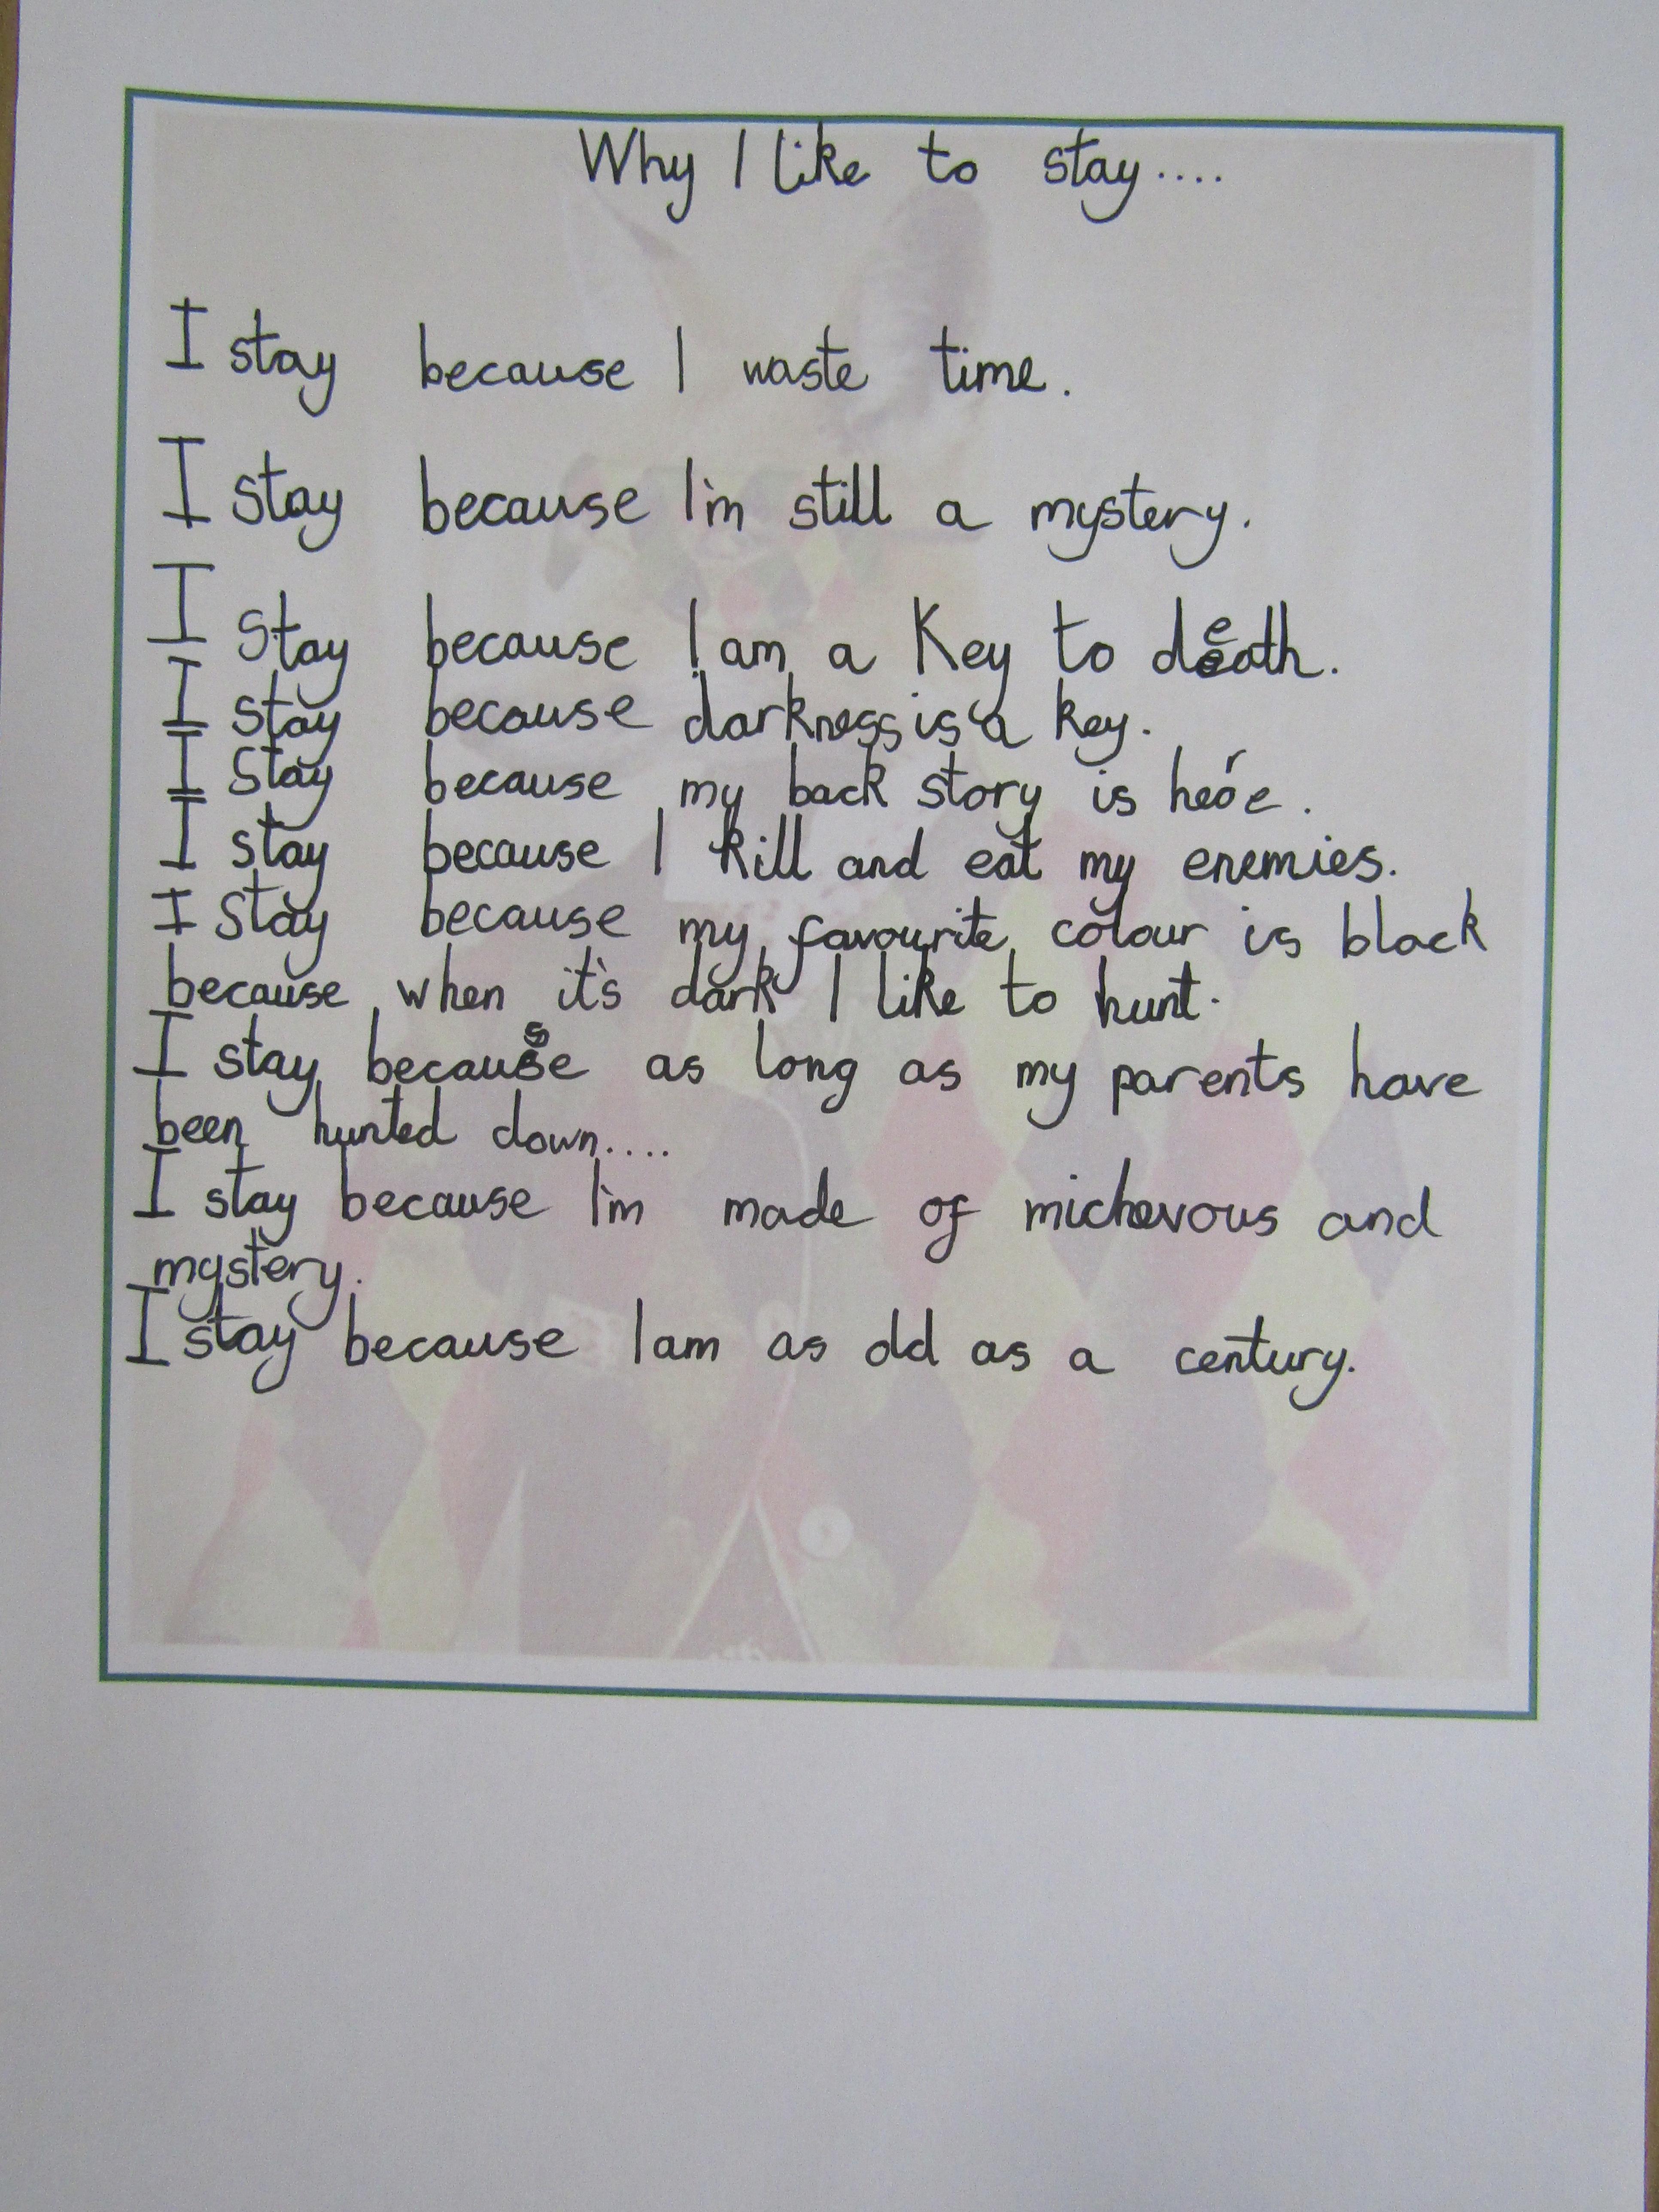 Why I like to stay....
I stay because I waste time.
I stay because I'm still a mystery.
I stay because I am a Key to death.
I stay because darkness is a key.
I stay because my back story is here.
I stay because I kill and eat my enemies.
I stay because my favourite colour is black
because when it's dark I like to hunt.
I stay because as long as my parents have
been hunted down....
I stay because I'm made of michevous and
mystery.
I stay because I am as old as a century.